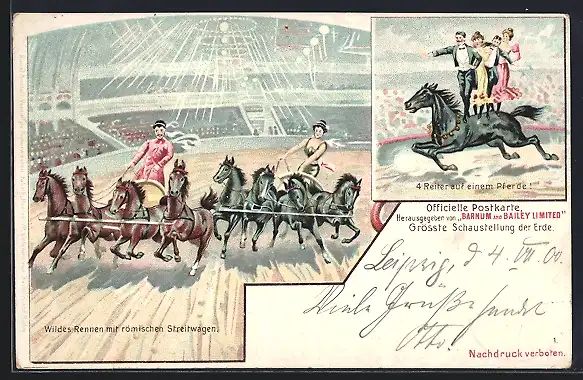 4 Reiter auf einem Pferde!
Officielle Postkarte,
Herausgegeben von „BARNUM AND BAILEY LIMITED"
Grösste Schaustellung der Erde.
Leipzig, d 4. VII. 00.
Viele Grüße sendet
Otto.
Wildes Rennen mit römischen Streitwagen.
1.
Nachdruck verboten.